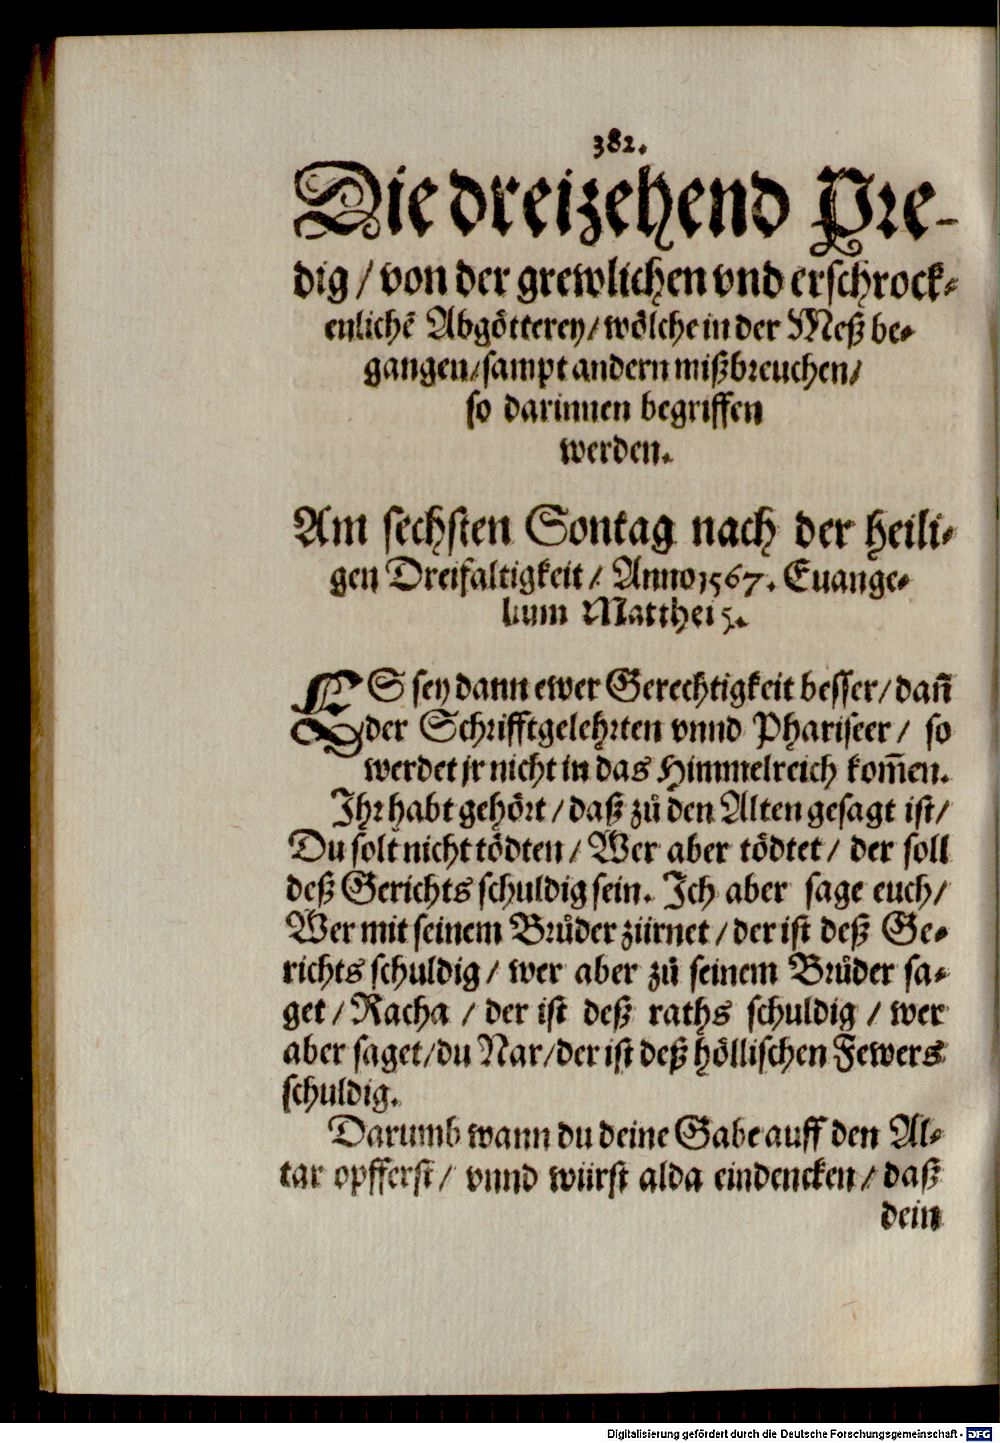 382.
Die dreizehend Pre-
dig / von der grewlichen vnd erschrock-
enlichẽ Abgötterey / wölche in der Meß be-
gangen / sampt andern mißbreuchen /
so darinnen begriffen
werden.
Am sechsten Sontag nach der heili-
gen Dreifaltigkeit / Anno 1567. Euange-
lium Matthei 5.
ES sey dann ewer Gerechtigkeit besser / dañ
der Schrifftgelehrten vnnd Phariseer / so
werdet jr nicht in das Himmelreich kom̃en.
Ihr habt gehört / daß zů den Alten gesagt ist /
Du solt nicht tödten / Wer aber tödtet / der soll
deß Gerichts schuldig sein. Ich aber sage euch /
Wer mit seinem Brůder zürnet / der ist deß Ge-
richts schuldig / wer aber zů seinem Brůder sa-
get / Racha / der ist deß raths schuldig / wer
aber saget / du Nar / der ist deß höllischen Fewers
schuldig.
Darumb wann du deine Gabe auff den Al-
tar opfferst / vnnd würst alda eindencken / daß
dein
Digitalisierung gefördert durch die Deutsche Forschungsgemeinschaft - DFG